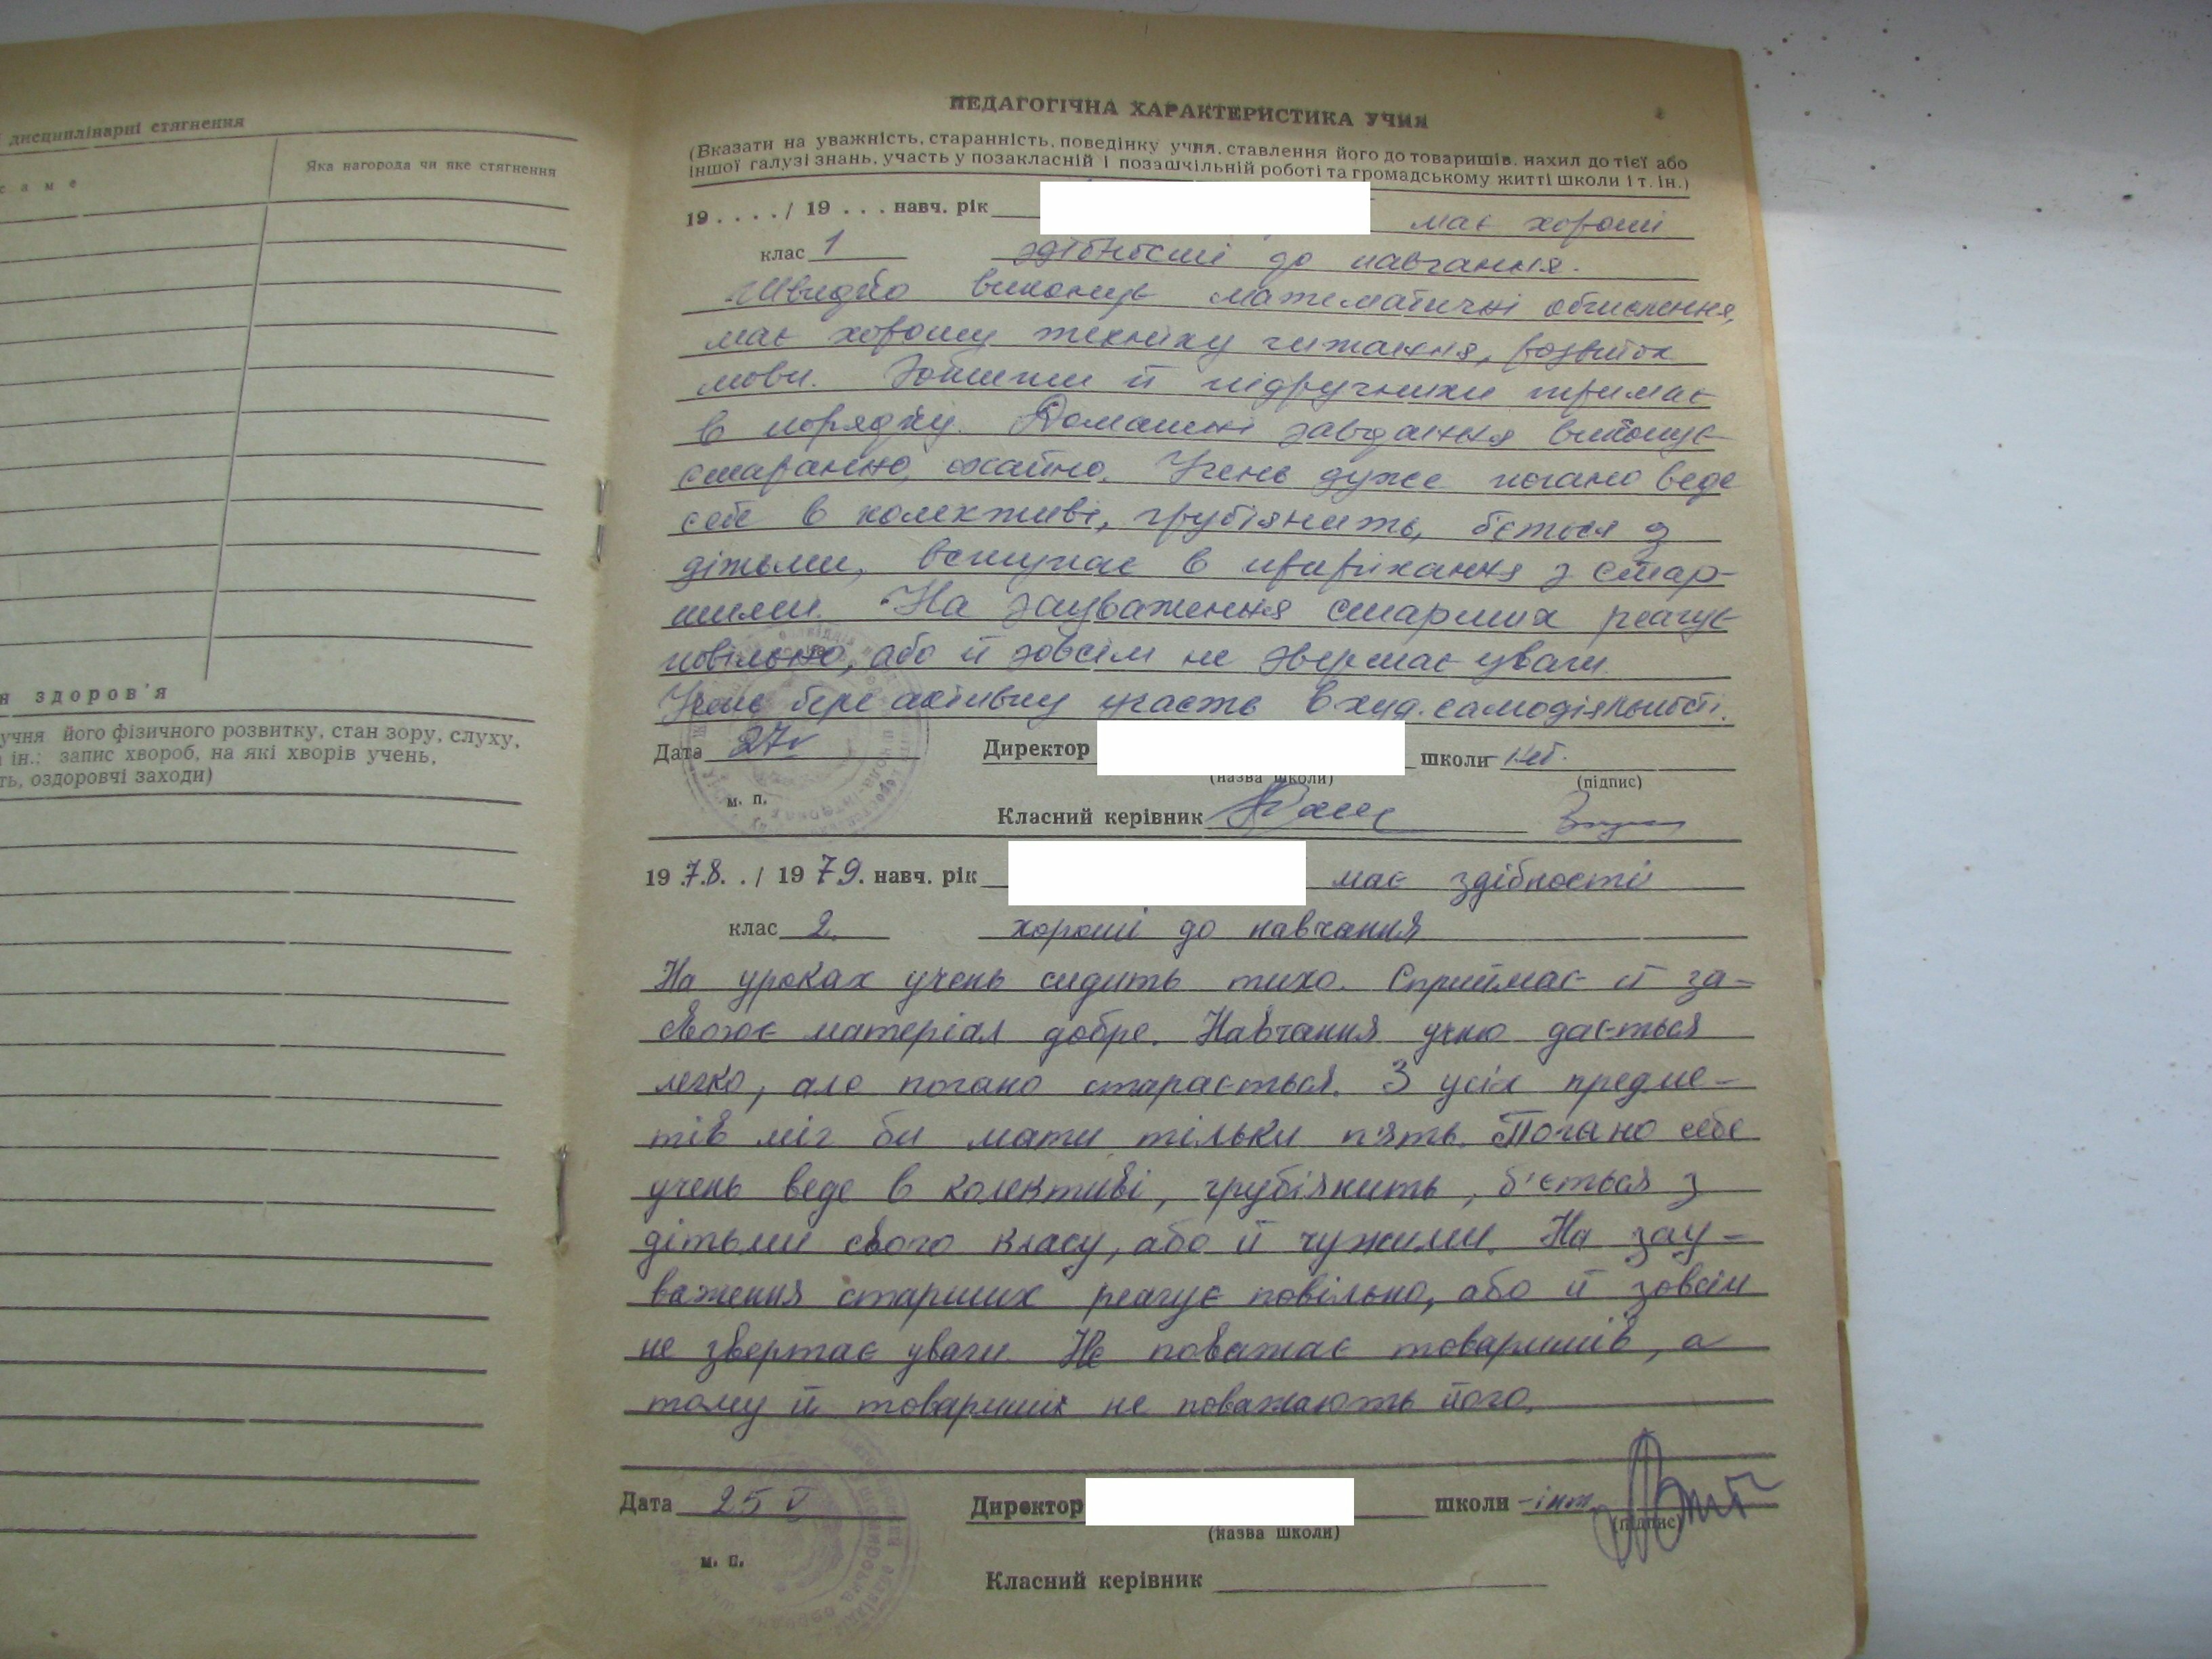 дисциплінарні стягнення
с а м е
Яка нагорода чи яке стягнення
н здоров'я
учня його фізичного розвитку, стан зору, слуху,
ін.: запис хвороб, на які хворів учень,
ть, оздоровчі заходи)
ПЕДАГОГІЧНА ХАРАКТЕРИСТИКА УЧНЯ
(Вказати на уважність, старанність, поведінку учня, ставлення його до товаришів, нахил до тієї або
іншої галузі знань, участь у позакласній і позашкільній роботі та громадському житті школи і т. ін.)
19 . . . . / 19 . . . навч. рік має хороші
клас 1 здібності до навчання.
Швидко виконує математичні обчислення,
має хорошу техніку читання, розвиток
мови. Зошити й підручники тримає
в порядку. Домашні завдання виконує
старанно, охайно. Учень дуже погано веде
себе в колективі, грубіянить, б'ється з
дітьми, вступає в пририкання з стар-
шими. На зауваження старших реагує
повільно, або й зовсім не звертає уваги
Учень бере активну участь в худ. самодіяльності.
Дата 27 V Директор школи
(назва школи) (підпис)
м. п.
Класний керівник
1978. . / 1979. навч. рік має здібності
клас 2. хороші до навчання
На уроках учень сидить тихо. Сприймає й за-
своює матеріал добре. Навчання учню дається
легко, але погано старається. З усіх предме-
тів міг би мати тільки п'ять. Погано себе
учень веде в колективі, грубіянить, б'ється з
дітьми свого класу, або й чужими. На зау-
важення старших реагує повільно, або й зовсім
не звертає уваги. Не поважає товаришів, а
тому й товариші не поважають його.
Дата 25 V Директор школи -інт.
(назва школи) (підпис)
м. п.
Класний керівник